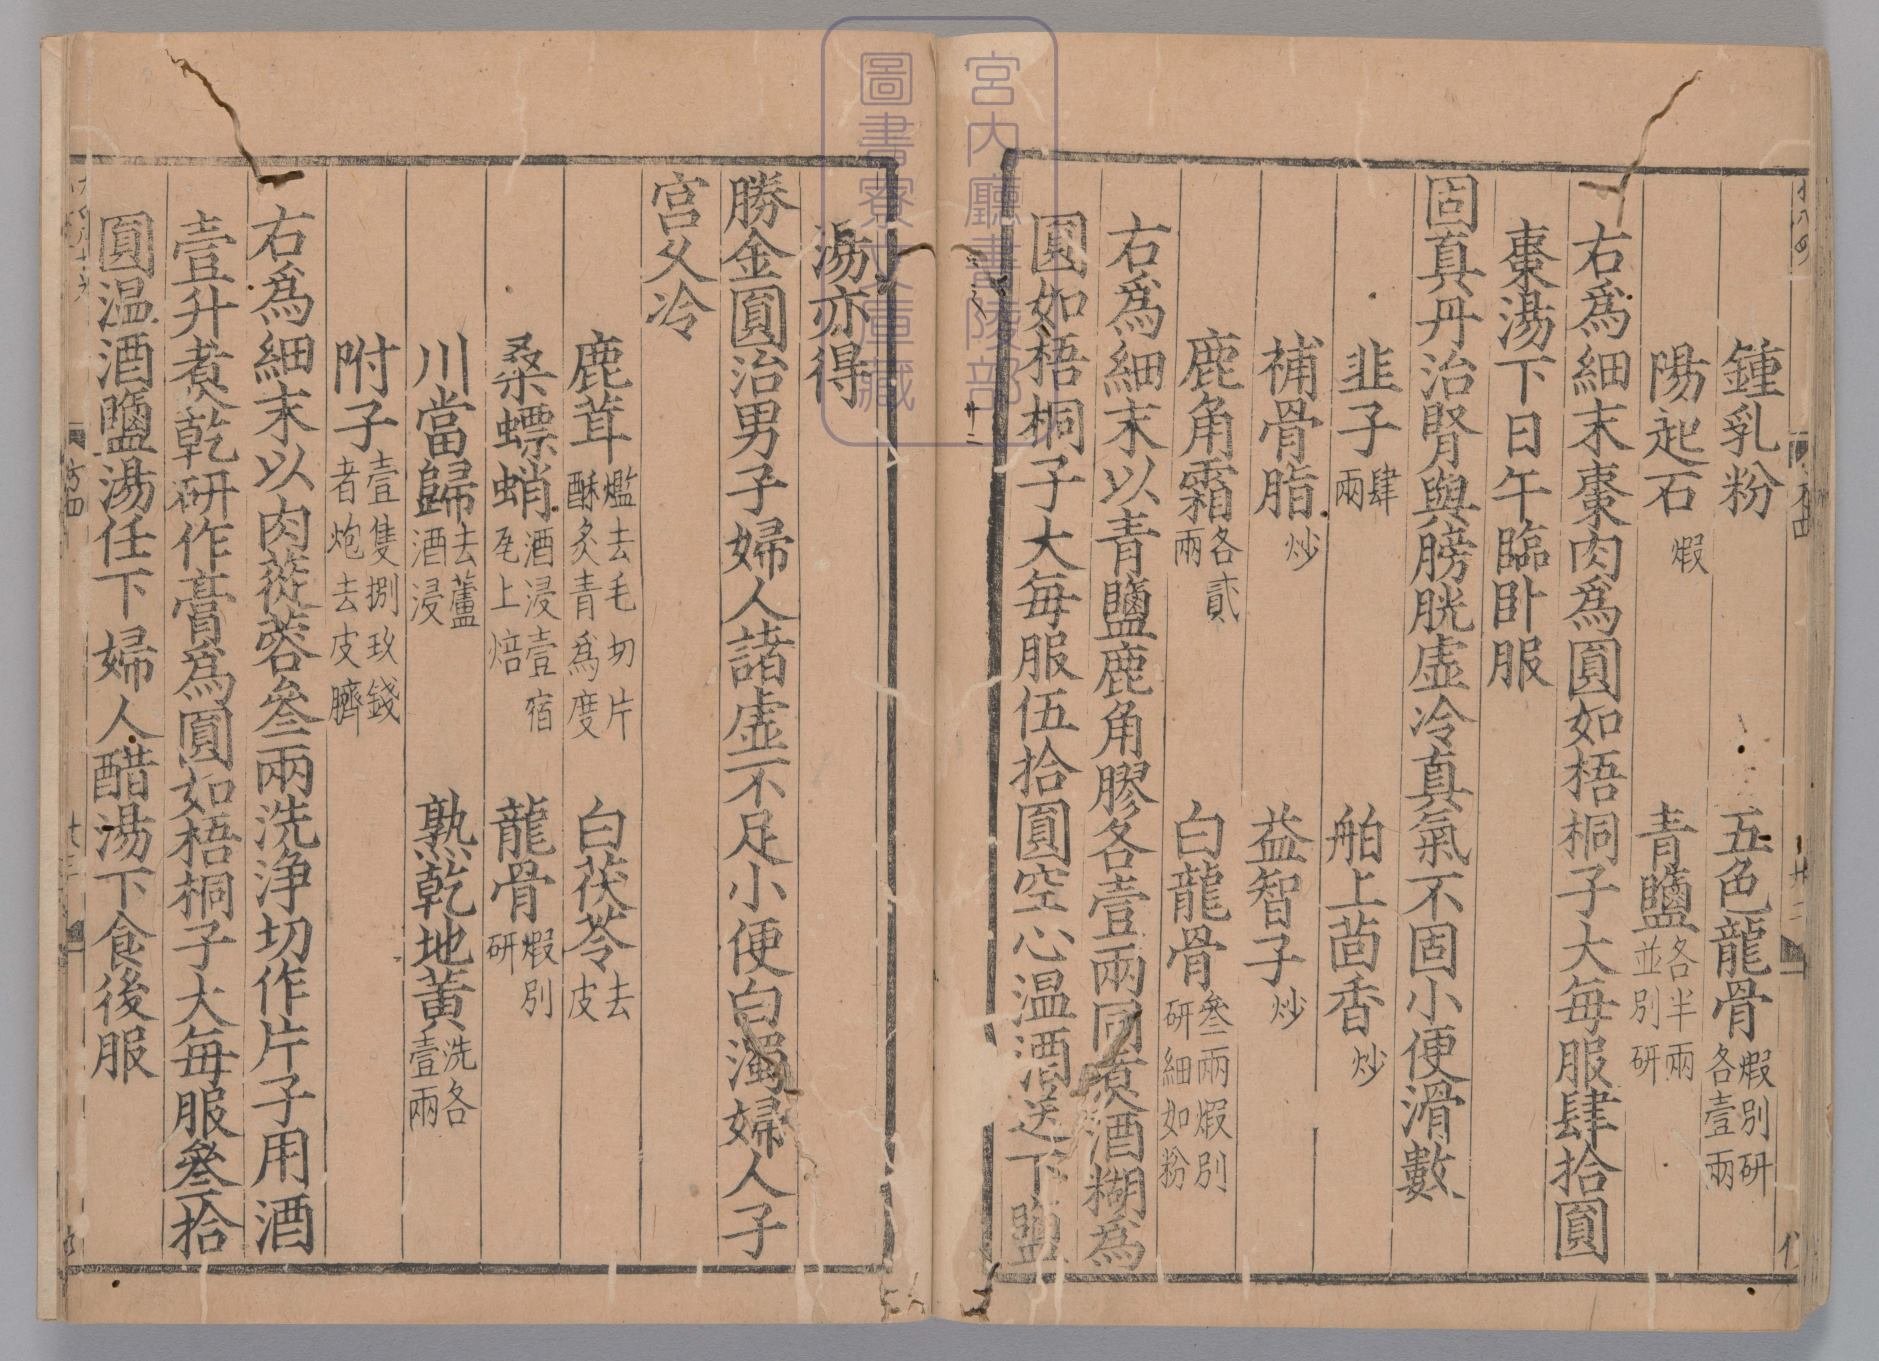 鍾乳粉　五色龍骨煆別研各壹兩
陽起石煆　青鹽各半兩並別研
右爲細末棗肉爲圓如梧桐子大每服肆拾圓
棗湯下日午臨卧服
固真丹治腎與膀胱虛冷真氣不固小便滑數
韭子肆兩　舶上茴香炒
補骨脂炒　益智子炒
鹿角霜各貳兩　白龍骨叁兩煆別研細如粉
右爲細末以青鹽鹿角膠各壹兩同煑酒糊爲
圓如梧桐子大每服伍拾圓空心温酒送下鹽
湯亦得
勝金圓治男子婦人諸虛不足小便白濁婦人子
宫久冷
鹿茸爁去毛切片酥炙青爲度　白茯苓去皮
桑螵蛸酒浸壹宿瓦上焙　龍骨煆別研
川當歸去蘆酒浸　熟乾地黃洗各壹兩
附子壹隻捌玖錢者炮去皮臍
右爲細末以肉蓯蓉叁兩洗浄切作片子用酒
壹升煑乾研作膏爲圓如梧桐子大每服叁拾
圓温酒鹽湯任下婦人醋湯下食後服
宮内廳書陵部
圖書寮文庫藏